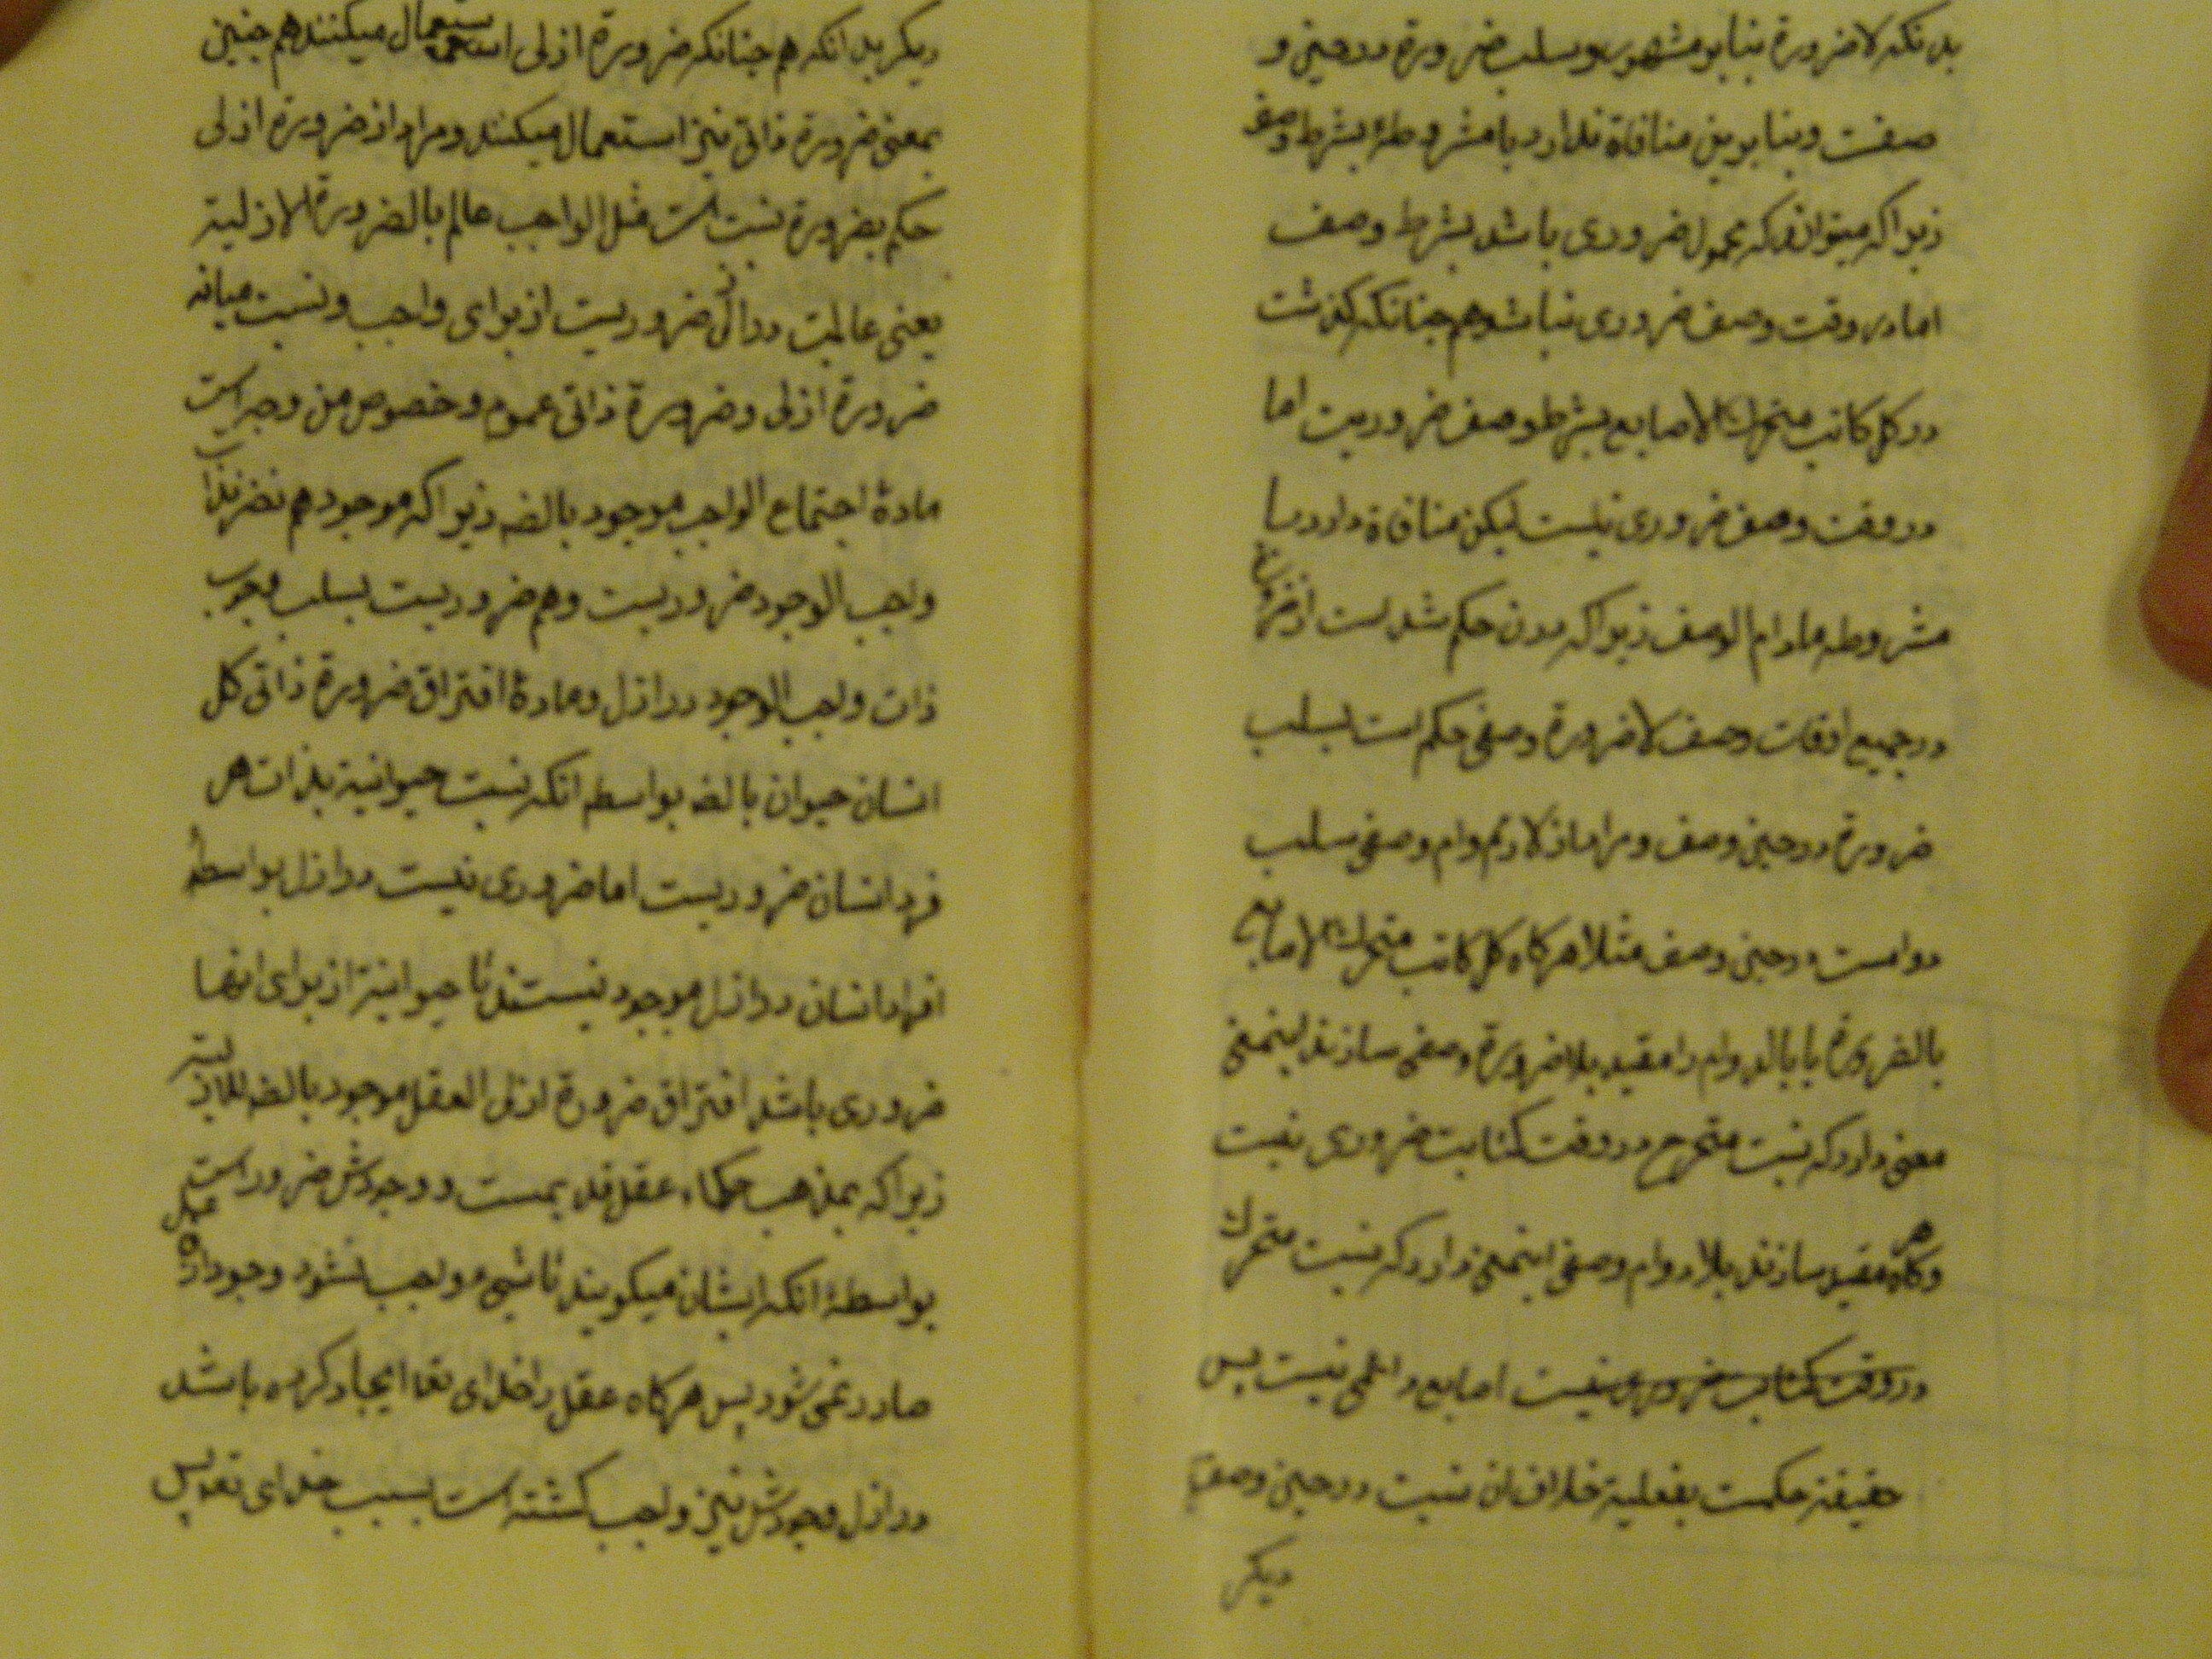 بدنکه لاضرورة بنابر مشهور سلب ضرورة در حین و
صفت وبنابرین منافاة ندارد بامشروطهٔ بشرط وصف
زیراکه میتواند که محمول ضروری باشد بشرط وصف
اما در وقت وصف ضروری نباشد هم جنانکه کذشت
در کل کاتب متحرك الاصابع بشرط وصف ضروریت اما
در وقت وصف ضروری نیست لیکن منافاة دارد با
مشروطه مادام الوصف زیراکه در حکم شد است از ضرورة
در جمیع اوقات وصف لاضرورة وصفی حکم است بسلب
ضرورة در حین وصف و مراد از لادوام وصفی سلب
دوامست در حین وصف مثلا هرکاه کل کاتب متحرك الاصابع
بالضرورة یا بالدوام را مقید بلاضرورة وصفی سازند اینمعنی
معنی دارد که نسبت متحرح در وقت کتابت ضروری نیست
وهرکاه مقید سازند بلادوام وصفی اینمعنی دارد که نسبت متحرك
در وقت کتابت ضروری نیست اصابع دائمی نیست پس
حقیقة حکمست بفعلیة خلاف ان نسبت در حین وصف
دیکر
دیکر بدانکه هم جنانکه ضرورة ازلی استعمال میکنند هم جنین
بمعنی ضرورة ذاتی نیز استعمال میکنند و مراد از ضرورة ازلی
حکم بضرورة نسبت است مثل الواجب عالم بالضرورة الازلیة
یعنی عالمیت در ازل ضروریست از برای واجب و نسبت میانه
ضرورة ازلی و ضرورة ذاتی عموم و خصوص من وجه است
مادهٔ اجتماع الواجب موجود بالضه زیراکه موجود هم نضر بذات
واجب الوجود ضروریست وهم ضروریست بسلب وجوب
ذات واجب الوجود در ازل و مادهٔ افتراق ضرورة ذاتی کل
انسان حیوان بالضه بواسطه انکه نسبت حیوانیة بذات هر
فرد انسان ضروریست اما ضروری نیست در ازل بواسطهٔ
افراد انسان در ازل موجود نیستند تا حیوانیة از برای انها
ضروری باشد افتراق ضرورة ازلی العقل موجود بالضه للازلیة
زیراکه بمذهب حکماء عقل قدیمست و وجودش ضرور است
بواسطهٔ انکه ایشان میکویند تا شیء واجب نشود وجود ازو
صادر نمی شود پس هرکاه عقل را خدای تعا ایجاد کرده باشد
در ازل وجودش نیز واجب کشته است بسبب خدای تعا پس